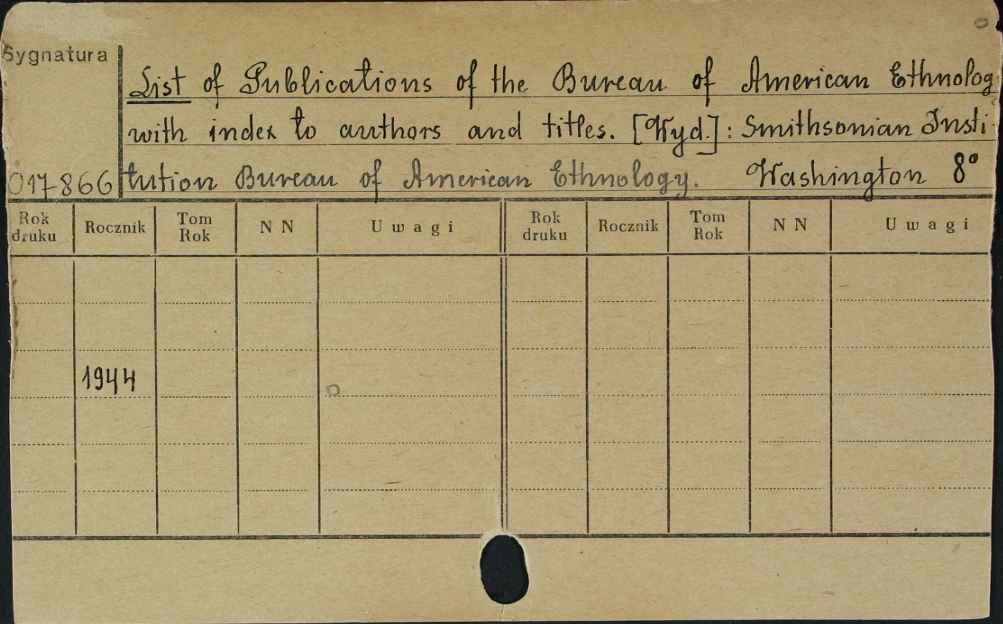 Sygnatura
List of Publications of the Bureau of American Ethnolog
with index to authors and titles. [Wyd.]: Smithsonian Insti-
017866 tution Bureau of American Ethnology. Washington 8°
Rok druku Rocznik Tom Rok NN Uwagi Rok druku Rocznik Tom Rok NN Uwagi
1944